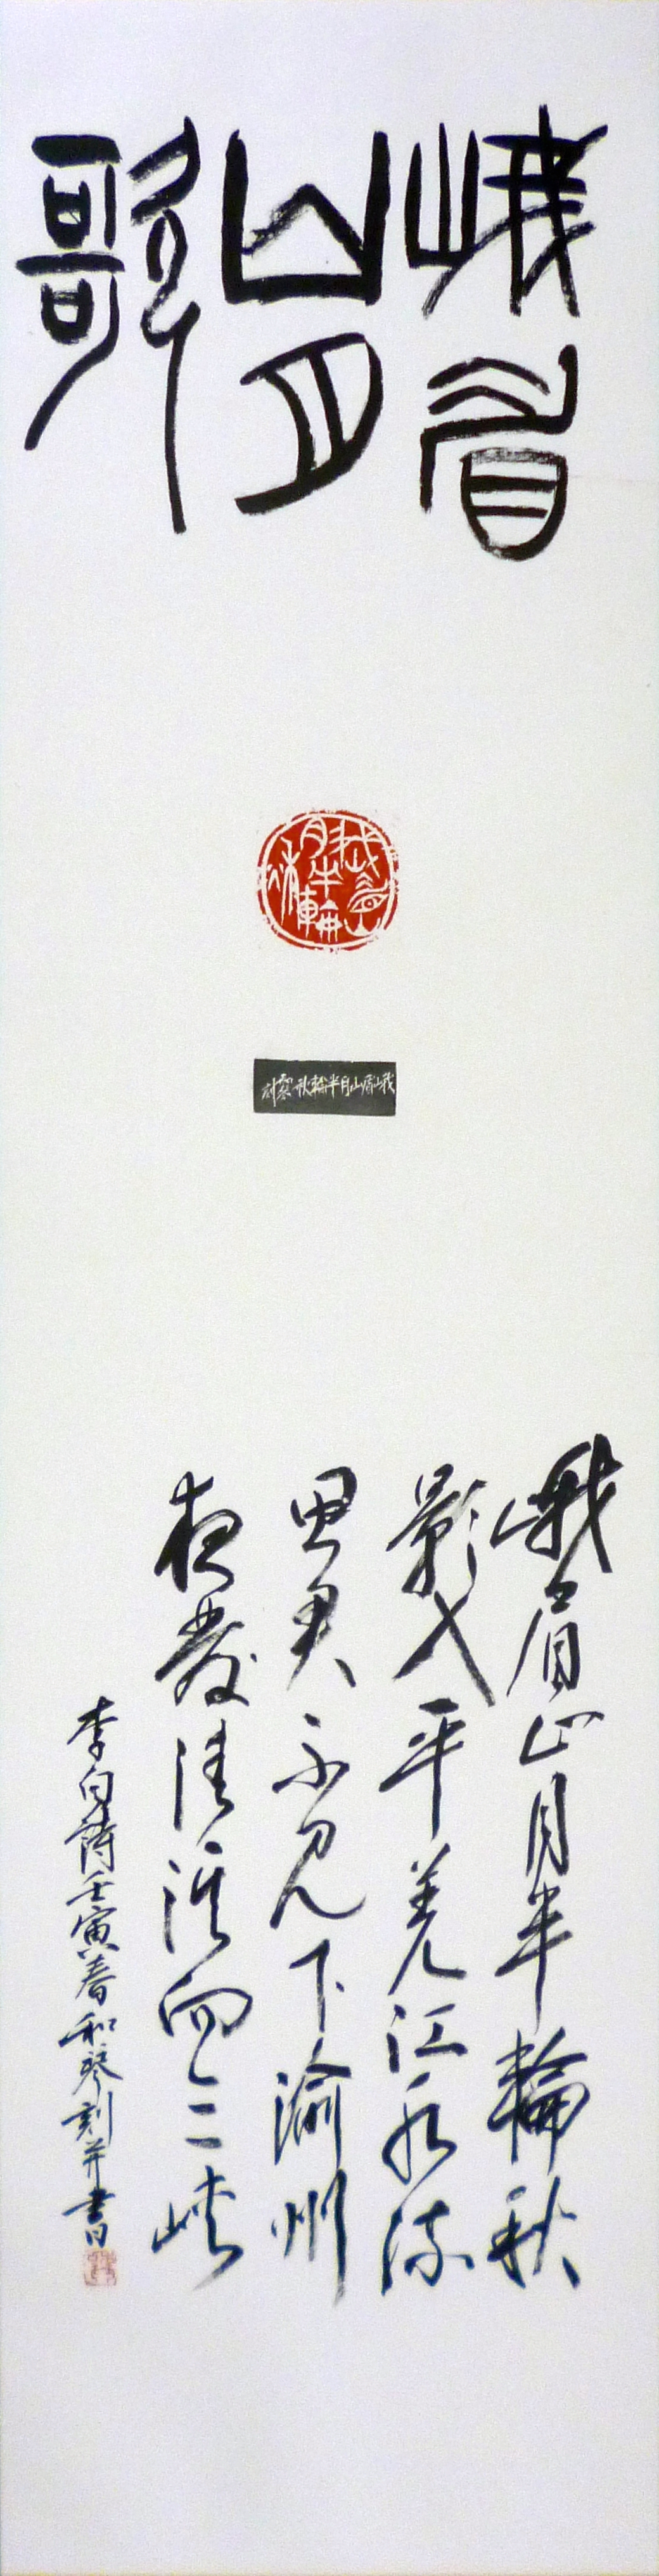 峨眉
山月
歌
峨眉山
月半輪
秋
峨眉山月半輪秋琴刻
峨眉山月半輪秋
影入平羌江水流
思君不見下渝州
夜發清溪向三峽
李白詩壬寅春和琴刻并書